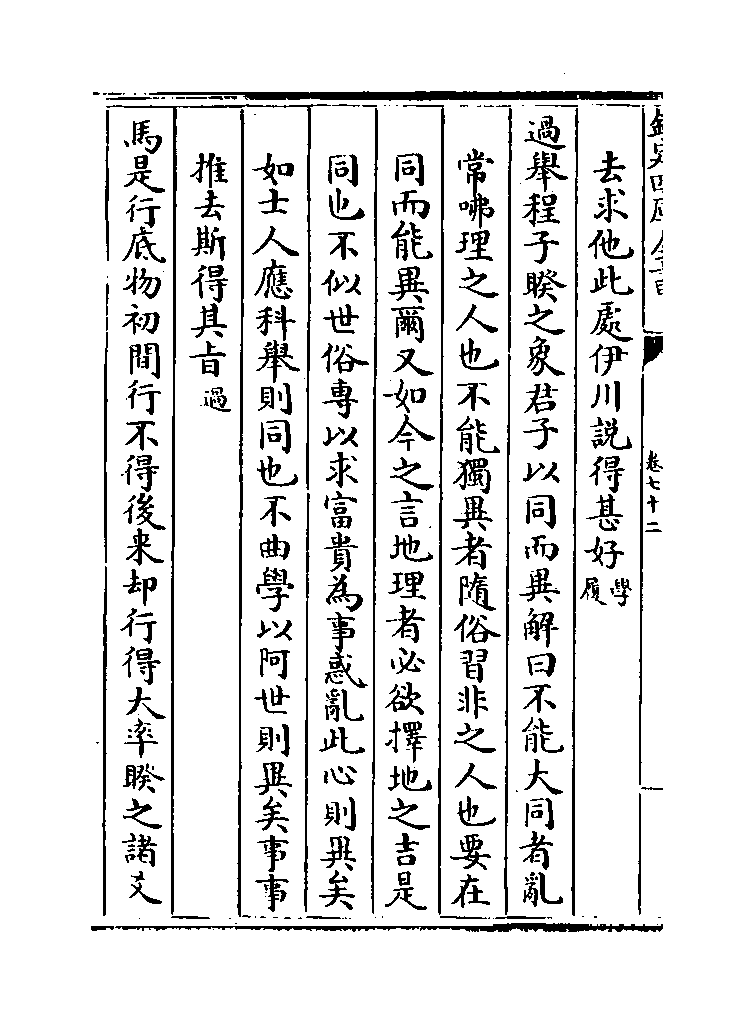 欽定四庫全書
卷七十二
去求他此處伊川説得甚好學履
過舉程子睽之象君子以同而異解曰不能大同者亂
常咈理之人也不能獨異者隨俗習非之人也要在
同而能異爾又如今之言地理者必欲擇地之吉是
同也不似世俗專以求富貴為事惑亂此心則異矣
如士人應科舉則同也不曲學以阿世則異矣事事
推去斯得其旨過
馬是行底物初間行不得後来却行得大率睽之諸爻